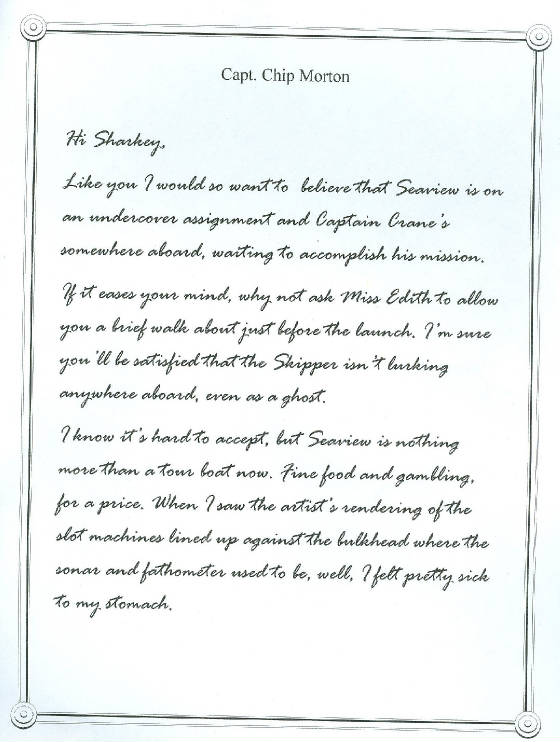 Capt. Chip Morton
Hi Sharkey,
Like you I would so want to believe that Seaview is on
an undercover assignment and Captain Crane's
somewhere aboard, waiting to accomplish his mission.
If it eases your mind, why not ask Miss Edith to allow
you a brief walk about just before the launch. I'm sure
you'll be satisfied that the Skipper isn't lurking
anywhere aboard, even as a ghost.
I know it's hard to accept, but Seaview is nothing
more than a tour boat now. Fine food and gambling,
for a price. When I saw the artist's rendering of the
slot machines lined up against the bulkhead where the
sonar and fathometer used to be, well, I felt pretty sick
to my stomach.